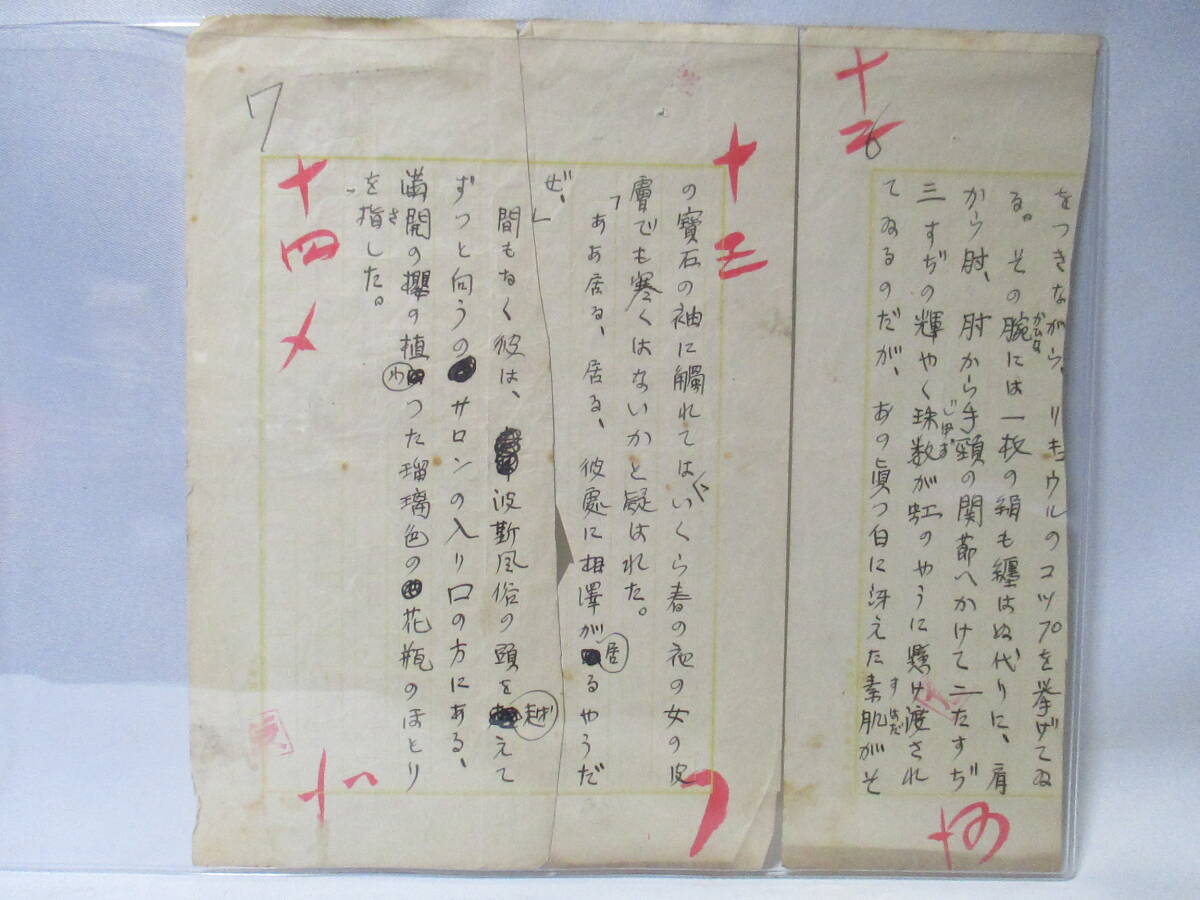 十二
6
をつきながら、リキウルのコツプを挙げてゐ
る。その腕には一枚の絹も纏はぬ代りに、肩
かひな
から肘、肘から手頸の関節へかけて二たすぢ
三すぢの輝やく珠数が虹のやうに懸け渡され
じゆず
てゐるのだが、あの眞つ白に冴えた素肌がそ
すはだ
十三
の寶石の袖に觸れては、いくら春の夜の女の皮
膚でも寒くはないかと疑はれた。
「ああ居る、居る、彼處に相澤が居るやうだ
ぜ、」
間もなく彼は、波斯風俗の頭を越えて
ずつと向うのサロンの入り口の方にある、
満開の櫻の植わつた瑠璃色の花瓶のほとり
を指した。
さ
7
十四